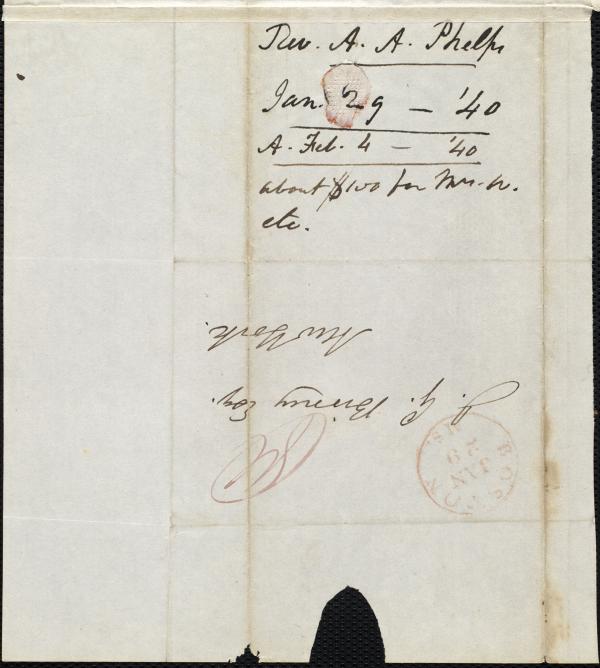 Rev. A. A. Phelps
Jan. 29 — '40
A. Feb. 4 — '40
about $100 for Mrs.
etc.
J. G. Birney Esq.
New York.
BOSTON MS
JAN
29